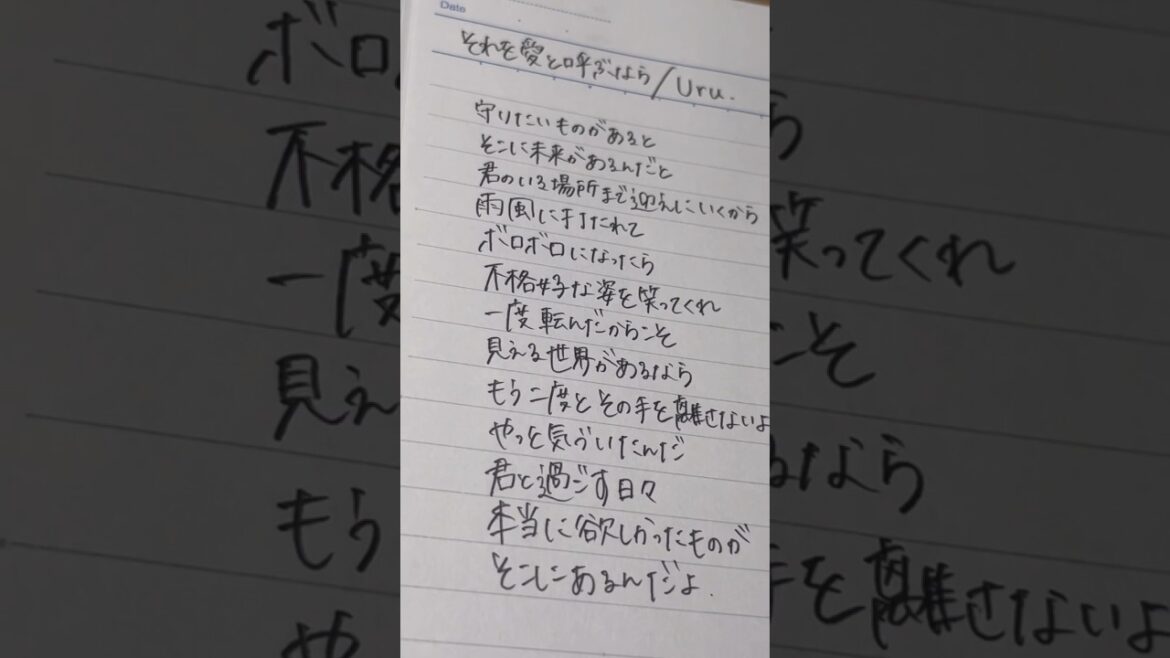 Date
それを愛と呼ぶなら/Uru.
守りたいものがあると
そこに未来があるんだと
君のいる場所まで迎えにいくから
雨風に打たれて
ボロボロになったら
不格好な姿を笑ってくれ
一度転んだからこそ
見える世界があるなら
もう二度とその手を離さないよ
やっと気づいたんだ
君と過ごす日々
本当に欲しかったものが
そこにあるんだよ.